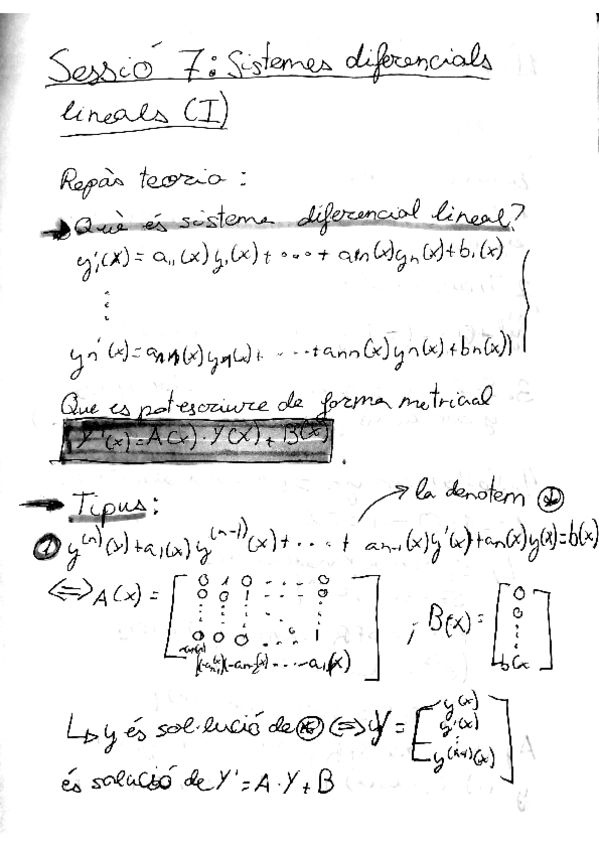 Sessió 7: Sistemes diferencials
lineals (I)
Repàs teoria:
→ Què és sistema diferencial lineal?
y₁'(x) = a₁₁(x) y₁(x) + ... + a₁n(x) yn(x) + b₁(x)
⋮
yn'(x) = an1(x) y1(x) + ... + ann(x) yn(x) + bn(x)
Que es pot escriure de forma matricial
Y'(x) = A(x) · Y(x) + B(x).
→ Tipus: → la denotem ⊛
① y⁽ⁿ⁾(x) + a₁(x) y⁽ⁿ⁻¹⁾(x) + ... + an-1(x) y'(x) + an(x) y(x) = b(x)
⟺ A(x) = [0 1 0 ... 0
0 0 1 ... 0
⋮
0 0 0 ... 1
-an(x) -an-1(x) -an-2(x) ... -a₁(x)] ; B(x) = [0
0
⋮
b(x)]
↳ y és sol·lució de ⊛ ⟺ Y = [y(x)
y'(x)
y⁽ⁿ⁻¹⁾(x)]
és solució de Y' = A · Y + B